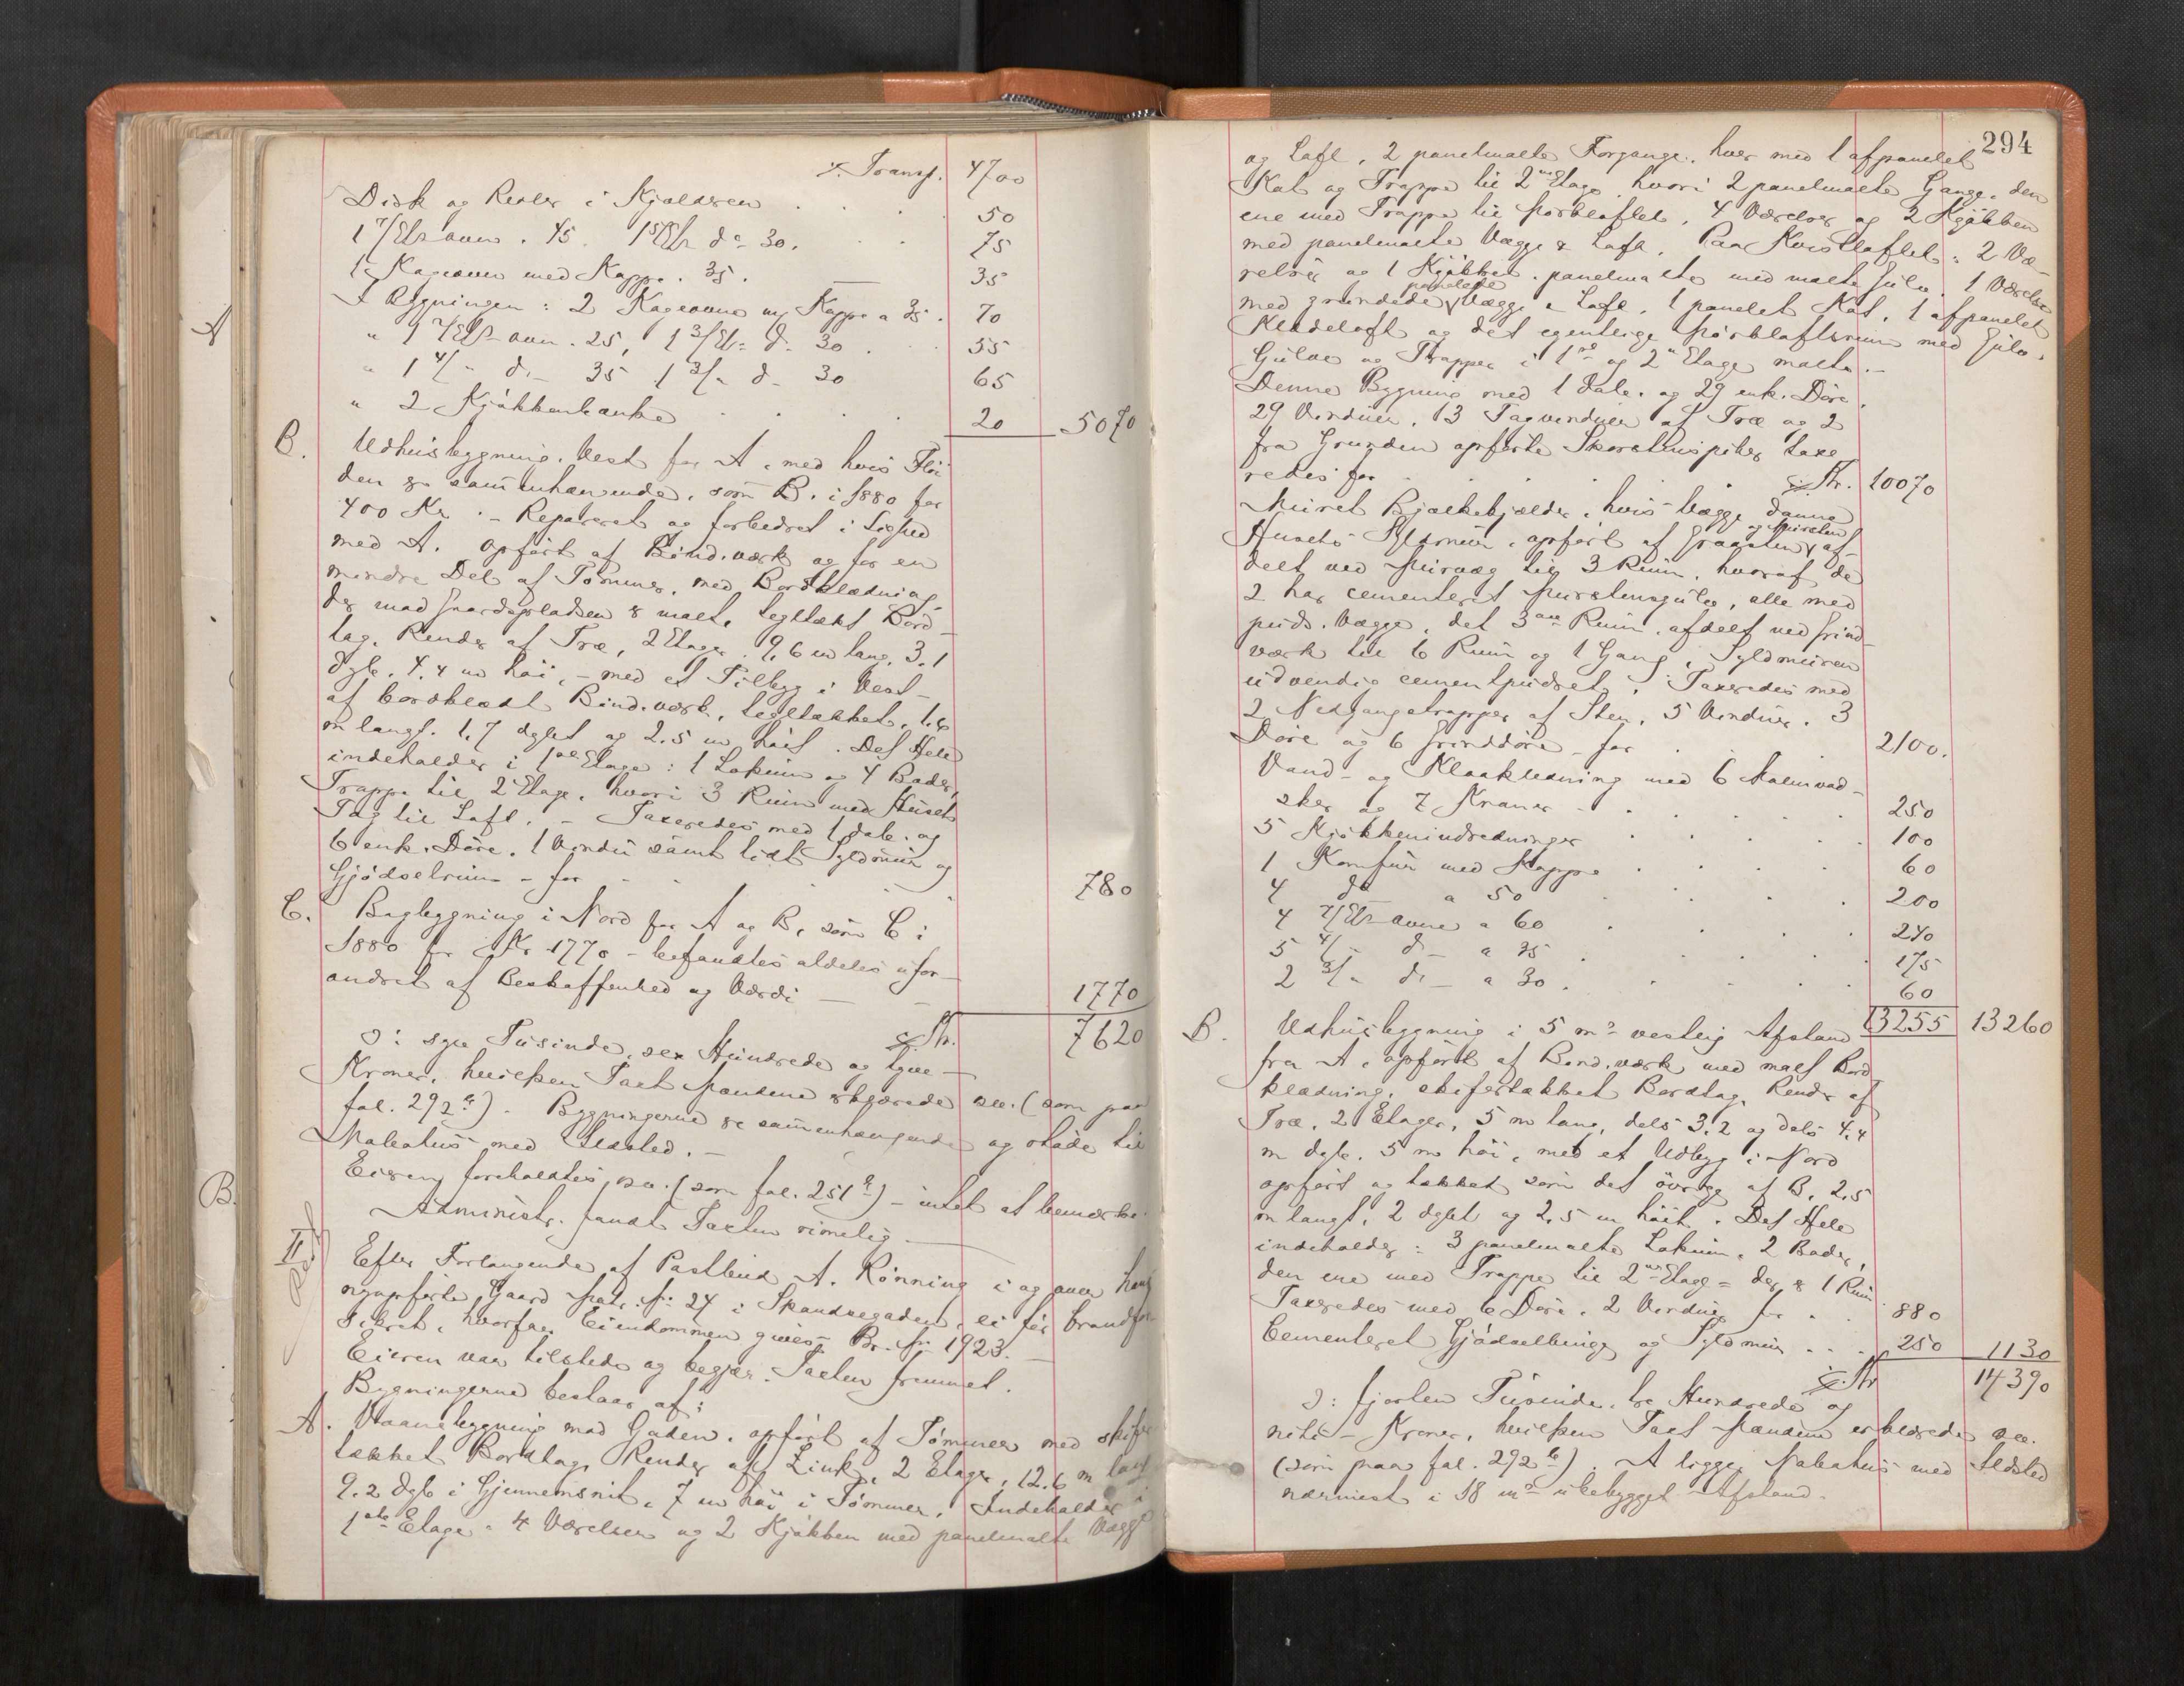 Transp. 4700
Disk og Reoler i Kjælderen . . . 50
1 7/Etsovn . 45. 1 5/Ets do 30. . . 75
1 Kageovn med Kappe . 35. — 35
I Bygningen : 2 Kageovne m/ Kappe a 35 . 70
" 1 7/Ets- ovn . 25, 1 3/Ets do 30 . . . 55
" 1 4/" do - 35 1 3/" do - 30 65
" 2 Kjøkkenbænke . . . . 20 5070
B. Udhusbygning, Vest for A, med hvis Flø-
den er sammenhængende, som B. i 1880 for
400 Kr. - Repareret og forbedret i Lighed
med A. opført af Bind.værk og for en
mindre Del af Tømmer, med Bordklædning,
der mod Gaardspladsen er malt, tegltækt Bord-
tag. Render af Træ, 2 Etager, 9,6 m lang, 3.1
dyb. 4.4 m høi, - med et Tilbyg i Vest -
af bordklædt Bind.værk, tegltækket, 1,6
m langt. 1,7 dybt og 2.5 m høit. Det Hele
indeholder i 1ste Etage : 1 Lokum og 4 Boder,
Trappe til 2 Etage, hvori 3 Rum med Husets
Tag til Loft. - Taxeredes med 1 dob. og
6 enk. Døre. 1 Vindu samt lidt Syldmur og
Gjødselrum - for - - . . . 780
C. Bagbygning i Nord for A og B, som C i
1880 for Kr 1770 - befandtes aldeles ufor-
andret af Beskaffenhed og Værdi — - 1770
Kr. 7620
ɔ: syv Tusinde, sex Hundrede og tyve —
Kroner, hvilken Taxt Mændene erklærede ov. (som paa
fol. 292 a). Bygningerne er sammenhængende og støde til
Nabohus med Ildsted. -
Eieren foreholdtes ov. (som fol. 251 a) - intet at bemærke.
Administr. fandt Taxten rimelig —
II Efter Forlangende af Postbud A. Rønning i og over hans
nyopførte Gaard Matr. No 24 i Skandsegaden, ei før brandfor-
sikret, hvorfor Eiendommen gives Br. No 1923. —
Eieren var tilstede og begjær. Taxten fremmet.
Bygningerne bestaar af :
A. Vaaningsbygning mod Gaden, opført af Tømmer med skifer-
tækket Bordtag, Render af Zink, 2 Etager, 12.6 m lang
9.2 dyb i Gjennemsnit, 7 m høi i Tømmer, Indeholder i
1ste Etage : 4 Værelser og 2 Kjøkken med panelmalte Vægge
A
B.
294
og Loft, 2 panelmalte Forgange, hver med 1 afpanelet
Kot og Trappe til 2den Etage hvori 2 panelmalte Gange, den
ene med Trappe til Mørkloftet, 4 Værelser og 2 Kjøkken
med panelmalte Vægge & Loft. Paa Kvistloftet : 2 Væ-
relser og 1 Kjøkken, panelmalte med malte Gulve. 1 Værelse
med grundede panelede Vægge & Loft, 1 panelet Kot, 1 afpanelet
Klædeloft og det egentlige Mørkloftsrum med Gulv.
Gulve og Trapper i 1ste og 2den Etage malte. -
Denne Bygning med 1 dob. og 29 enk. Døre,
29 Vinduer, 13 Tagvinduer af Træ og 2
fra Grunden opførte Skorstenspiber taxe-
redes for . . . . . Kr. 10070
Muret Bjælkekjælder, hvis Vægge danne
Husets Syldmur, opført af Graasten og Mursten, af-
delt ved Murvæg til 3 Rum, hvoraf de
2 har cementeret Murstensgulv, alle med
puds. Vægge, det 3die Rum, afdelt ved Grind-
værk til 6 Rum og 1 Gang, Syldmuren
udvendig cementpudset. Taxeredes med
2 Nedgangstrapper af Sten, 5 Vinduer, 3
Døre og 6 Grinddøre - for . . . 2100.
Vand- og Kloakledning med 6 Malmvad-
sker og 7 Kraner - . . . . 250
5 Kjøkkenindredninger . . . . 100
1 Komfur med Kappe . . . . 60
4 do a 50 . . . . 200
4 7/Ets-ovne a 60 . . . . 240
5 4/- do - a 35 . . . . 175
2 3/" do - a 30 . . . . 60
13255 13260
B. Udhusbygning i 5 ms vestlig Afstand
fra A, opført af Bind.værk med malt Bord-
klædning, skifertækket Bordtag, Render af
Træ, 2 Etager, 5 m lang, dels 3.2 og dels 4.4
m dyb. 5 m høi, med et Udbyg i Nord
opført og tækket som det øvrige af B, 2.5
m langt, 2 dybt og 2.5 m høit. Det Hele
indeholder : 3 panelmalte Lokum, 2 Boder,
den ene med Trappe til 2den Etage = der er 1 Rum.
Taxeredes med 6 Døre, 2 Vinduer for . . 880
Cementeret Gjødselbinge og Syldmur . . . 250 1130
Kr 14390
ɔ: fjorten Tusinde, tre Hundrede og
niti - Kroner, hvilken Taxt Mændene erklærede ov.
(som paa fol. 292 b). A ligger Nabohus med Ildsted
nærmest i 18 ms ubebygget Afstand.